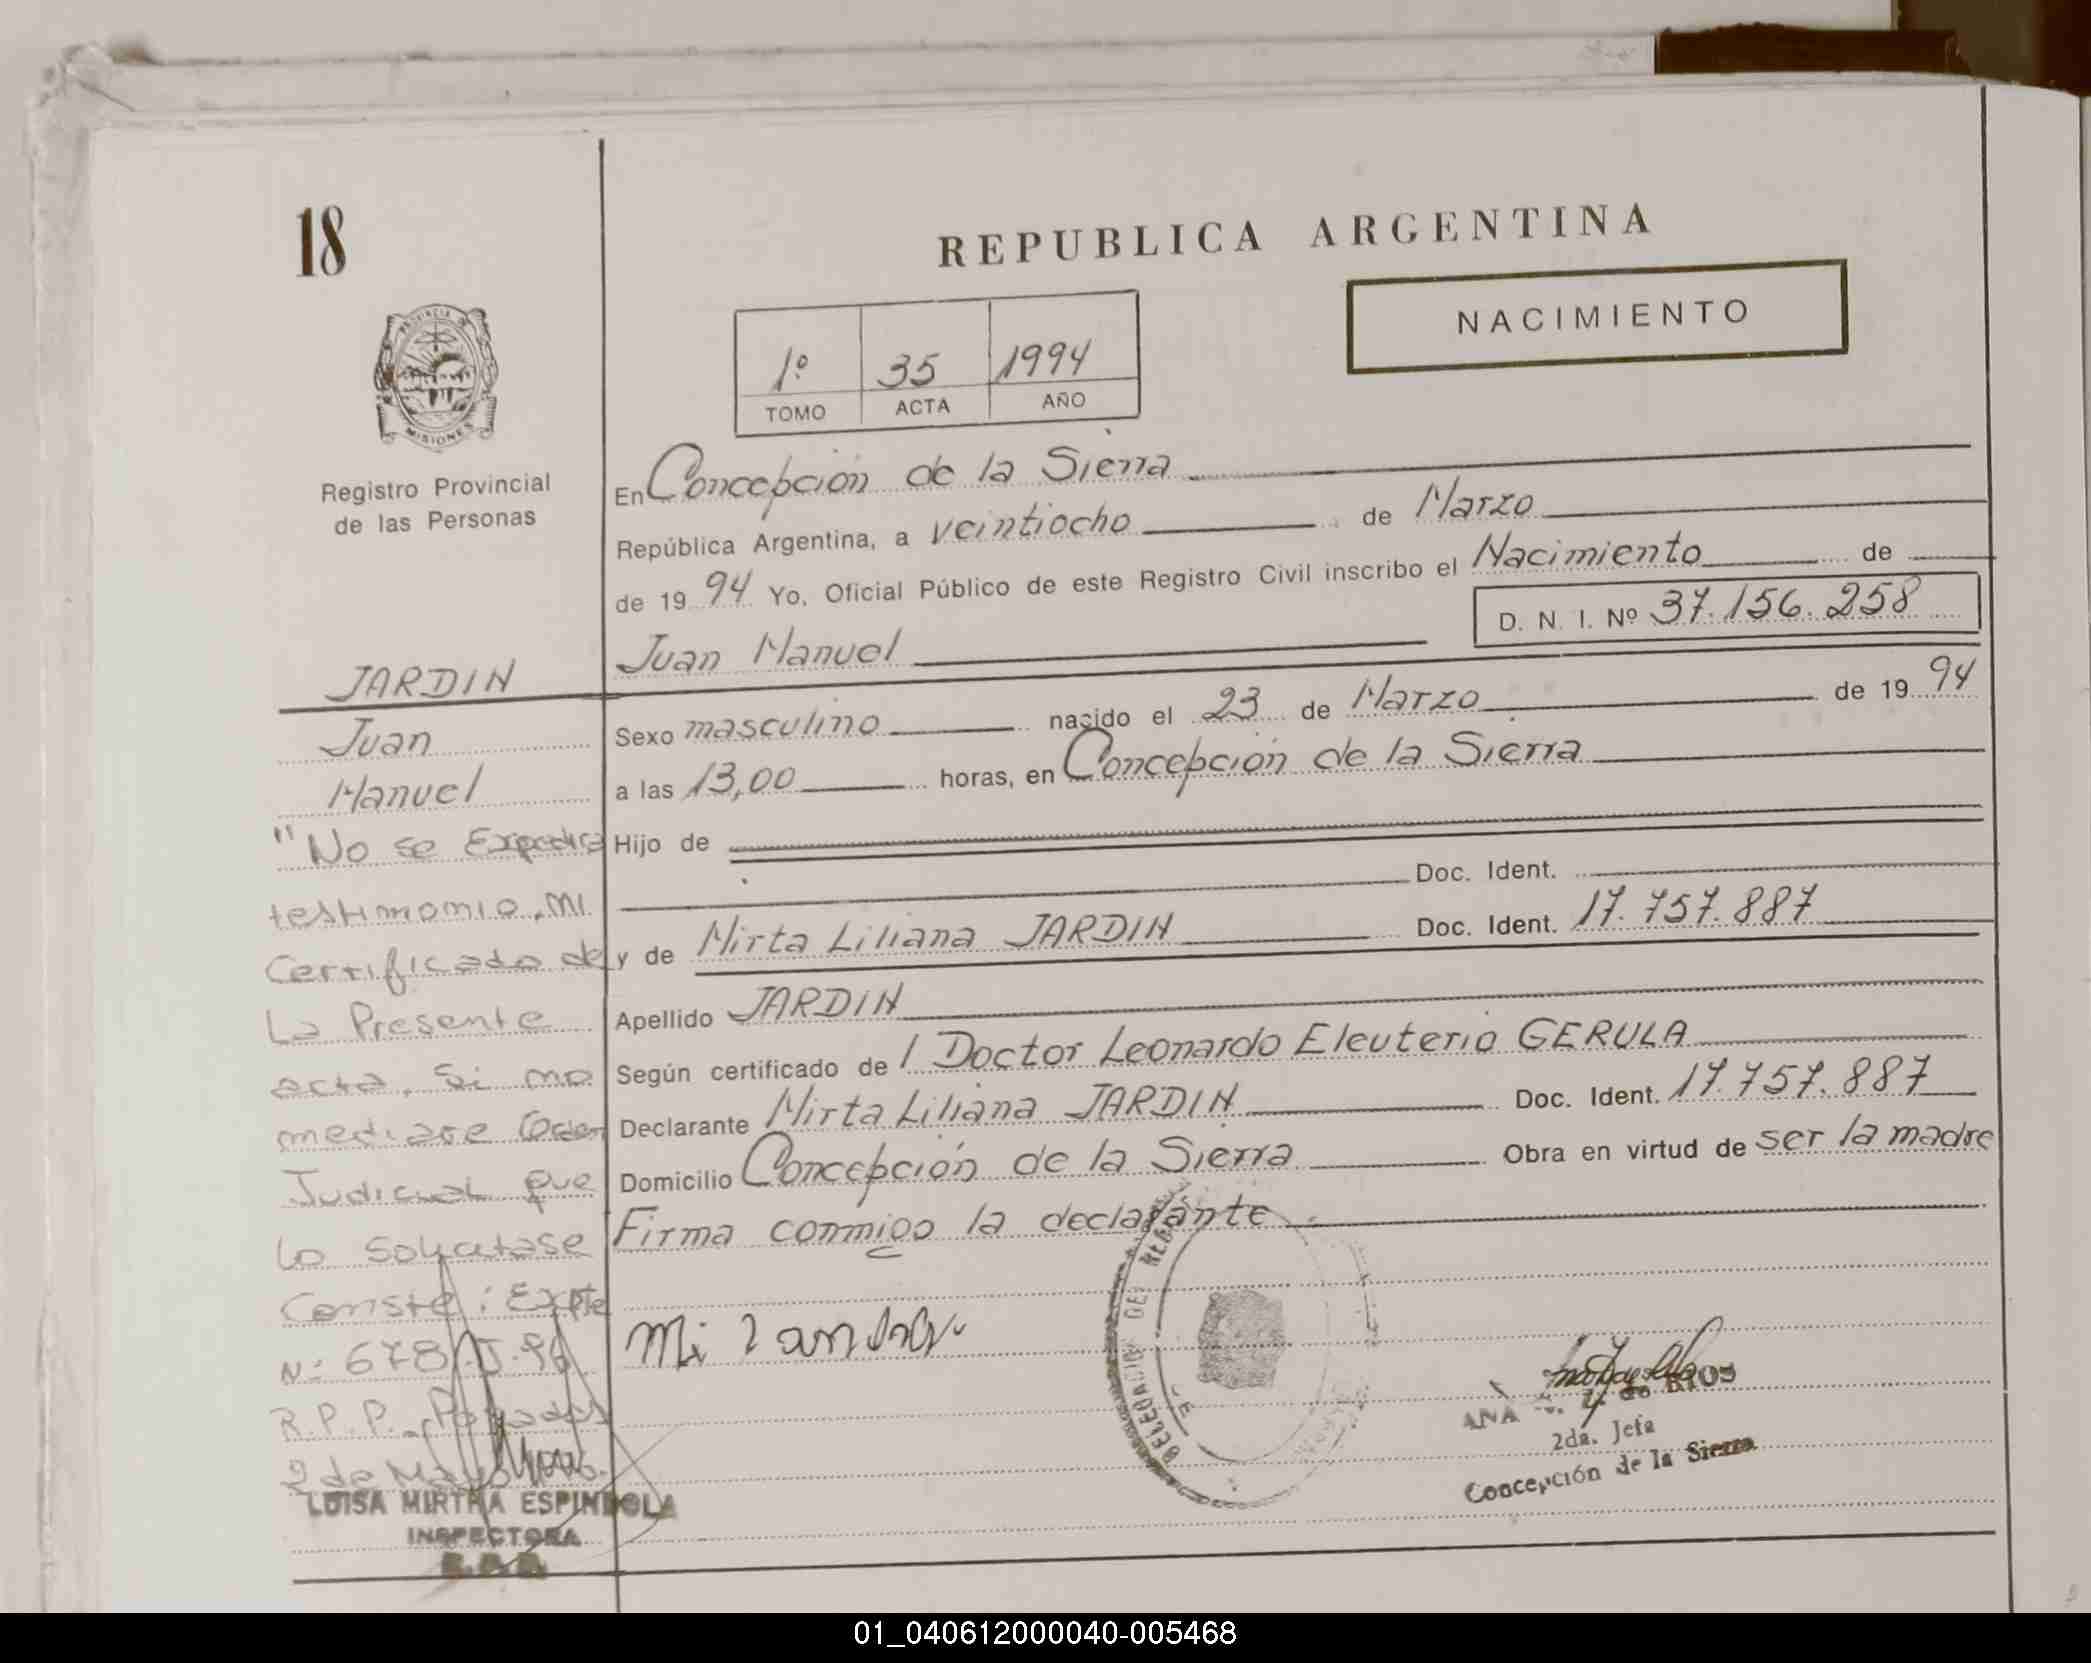 18
REPUBLICA ARGENTINA
NACIMIENTO
1º 35 1994
TOMO ACTA AÑO
PROVINCIA DE
MISIONES
Registro Provincial
de las Personas
En Concepción de la Sierra
República Argentina, a veintiocho de Marzo
de 19 94 Yo, Oficial Público de este Registro Civil inscribo el Nacimiento de
D. N. I. Nº 37.156.258
Juan Manuel
Sexo masculino nacido el 23 de Marzo de 19 94
a las 13,00 horas, en Concepción de la Sierra
Hijo de
Doc. Ident.
y de Mirta Liliana JARDIN Doc. Ident. 17.757.887
Apellido JARDIN
Según certificado de l Doctor Leonardo Eleuterio GERULA
Declarante Mirta Liliana JARDIN Doc. Ident. 17.757.887
Domicilio Concepción de la Sierra Obra en virtud de ser la madre
Firma conmigo la declarante
JARDIN
Juan
Manuel
"No se Expedira
testimonio, ni
Certificado de
La Presente
acta, Si no
mediare Orden
Judicial que
lo solicitase
Conste: Expte
N: 678 J.96
R.P.P. Posadas
2 de Mayo
LUISA MIRTHA ESPINDOLA
INSPECTORA
DELEGACION DEL REGI
ANA de RIOS
2da. Jefa
Concepción de la Sierra
01_040612000040-005468